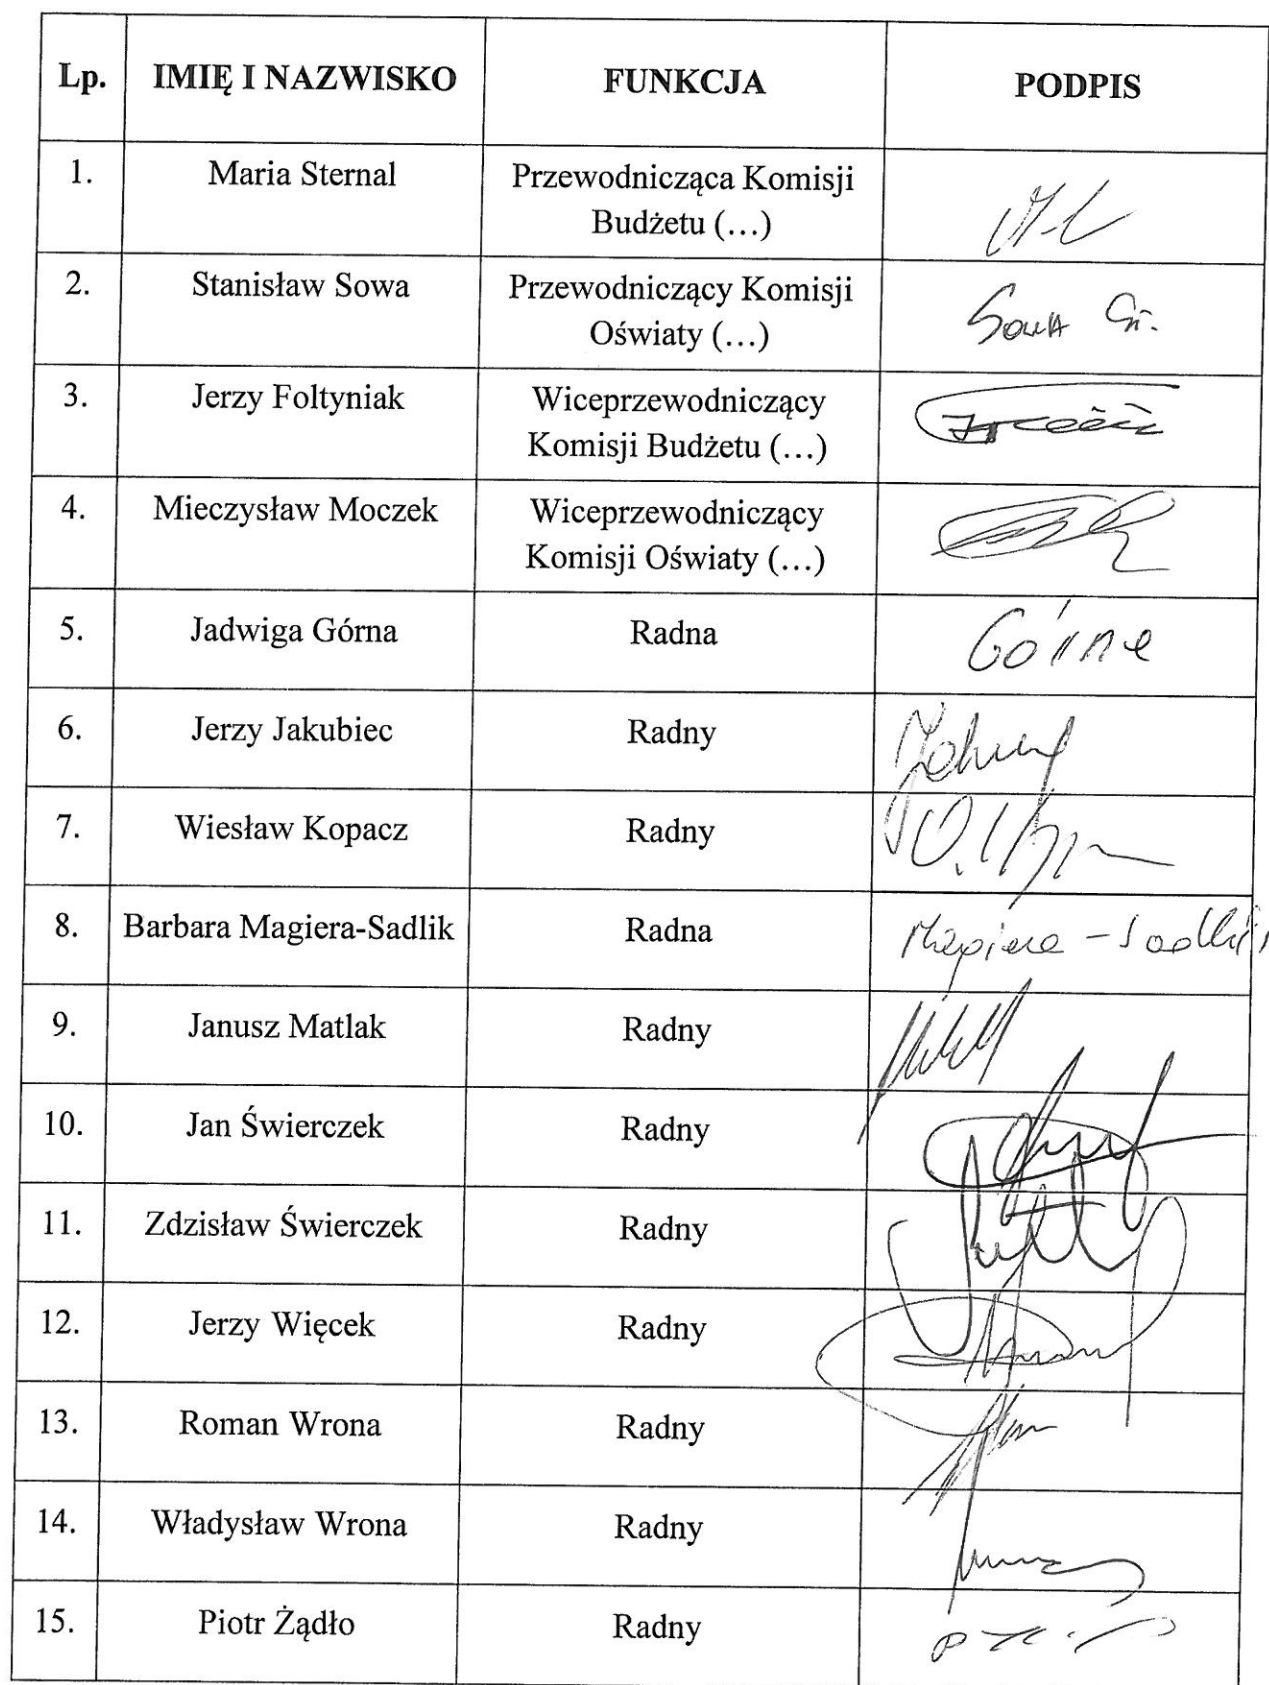 Lp. IMIĘ I NAZWISKO FUNKCJA PODPIS
1. Maria Sternal Przewodnicząca Komisji
Budżetu (…)
2. Stanisław Sowa Przewodniczący Komisji Sowa St.
Oświaty (…)
3. Jerzy Foltyniak Wiceprzewodniczący
Komisji Budżetu (…)
4. Mieczysław Moczek Wiceprzewodniczący
Komisji Oświaty (…)
5. Jadwiga Górna Radna Górna
6. Jerzy Jakubiec Radny
7. Wiesław Kopacz Radny
8. Barbara Magiera-Sadlik Radna Magiera-Sadlik
9. Janusz Matlak Radny
10. Jan Świerczek Radny
11. Zdzisław Świerczek Radny
12. Jerzy Więcek Radny
13. Roman Wrona Radny
14. Władysław Wrona Radny
15. Piotr Żądło Radny